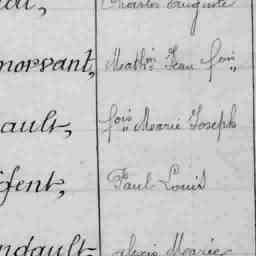 Charles Auguste
norvant, Math.in Jean fois
ault, fois Marie Joseph
fent, Paul Louis
ndault Alexis Marie